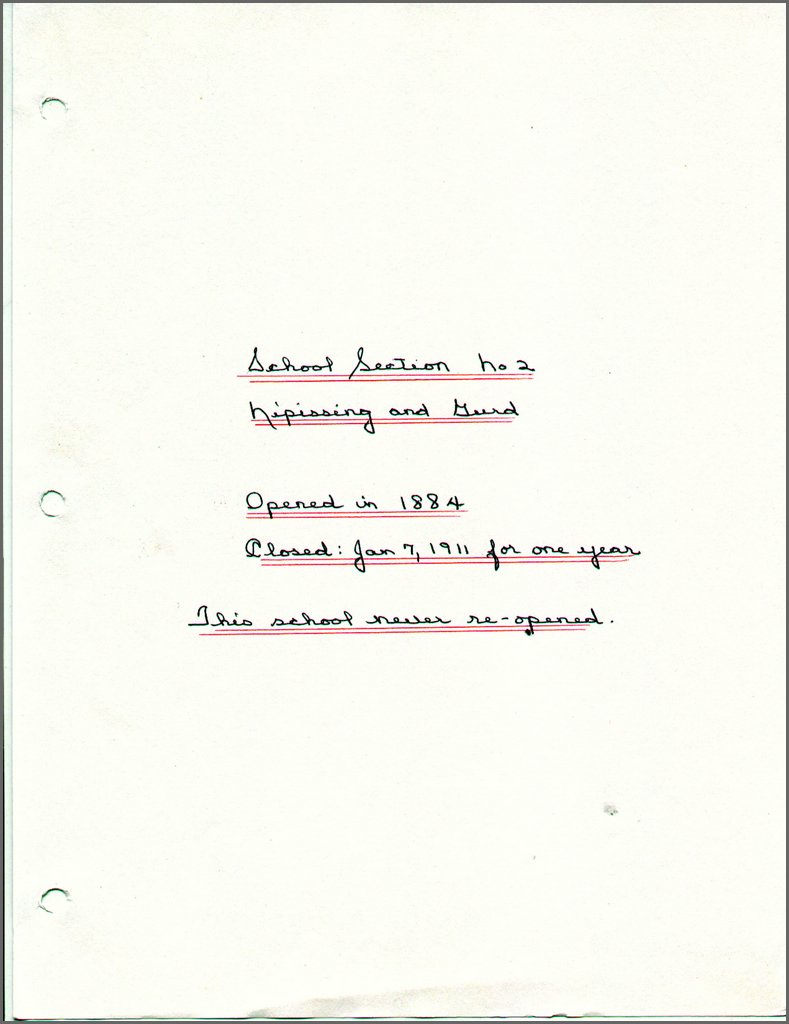 School Section No 2
Nipissing and Gurd
Opened in 1884
Closed: Jan 7, 1911 for one year
This school never re-opened.